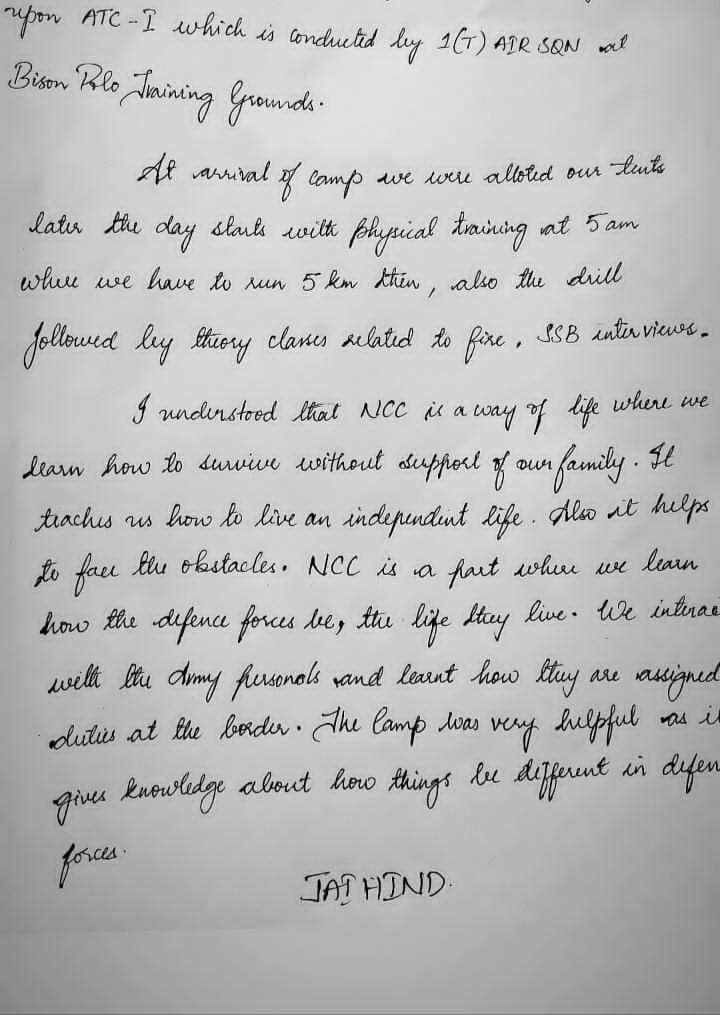 upon ATC-I which is conducted by 1(T) AIR SQN at
Bison Polo Training Grounds.
At arrival of camp we were alloted our tents
later the day starts with physical training at 5 am
where we have to run 5 km then, also the drill
followed by theory classes related to fire, SSB interviews.
I understood that NCC is a way of life where we
learn how to survive without support of our family. It
teaches us how to live an independent life. Also it helps
to face the obstacles. NCC is a part where we learn
how the defence forces be, the life they live. We interac
with the Army personals and learnt how they are assigned
duties at the border. The Camp was very helpful as i
gives knowledge about how things be different in defen
forces.
JAI HIND.